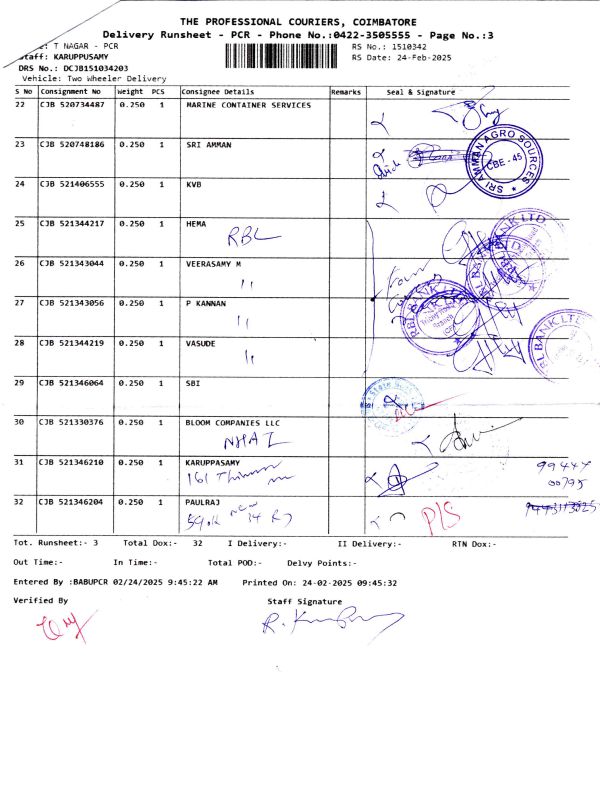 THE PROFESSIONAL COURIERS, COIMBATORE
Delivery Runsheet - PCR - Phone No.:0422-3505555 - Page No.:3
: T NAGAR - PCR
RS No.: 1510342
Staff: KARUPPUSAMY
RS Date: 24-Feb-2025
DRS No.: DCJB151034203
Vehicle: Two Wheeler Delivery
S No Consignment No Weight PCS Consignee Details Remarks Seal & Signature
22 CJB 520734487 0.250 1 MARINE CONTAINER SERVICES
23 CJB 520748186 0.250 1 SRI AMMAN
SRI AMMAN AGRO SOURCES
CBE - 45
24 CJB 521406555 0.250 1 KVB
25 CJB 521344217 0.250 1 HEMA
RBL
RBL BANK LTD
26 CJB 521343044 0.250 1 VEERASAMY M
11
27 CJB 521343056 0.250 1 P KANNAN
11
RBL BANK LTD
Branch
28 CJB 521344219 0.250 1 VASUDE
11
RBL BANK LTD
29 CJB 521346064 0.250 1 SBI
30 CJB 521330376 0.250 1 BLOOM COMPANIES LLC
NHAI
31 CJB 521346210 0.250 1 KARUPPASAMY
161
99447
00795
32 CJB 521346204 0.250 1 PAULRAJ
new
P/S
Tot. Runsheet:- 3 Total Dox:- 32 I Delivery:- II Delivery:- RTN Dox:-
Out Time:- In Time:- Total POD:- Delvy Points:-
Entered By :BABUPCR 02/24/2025 9:45:22 AM Printed On: 24-02-2025 09:45:32
Verified By Staff Signature